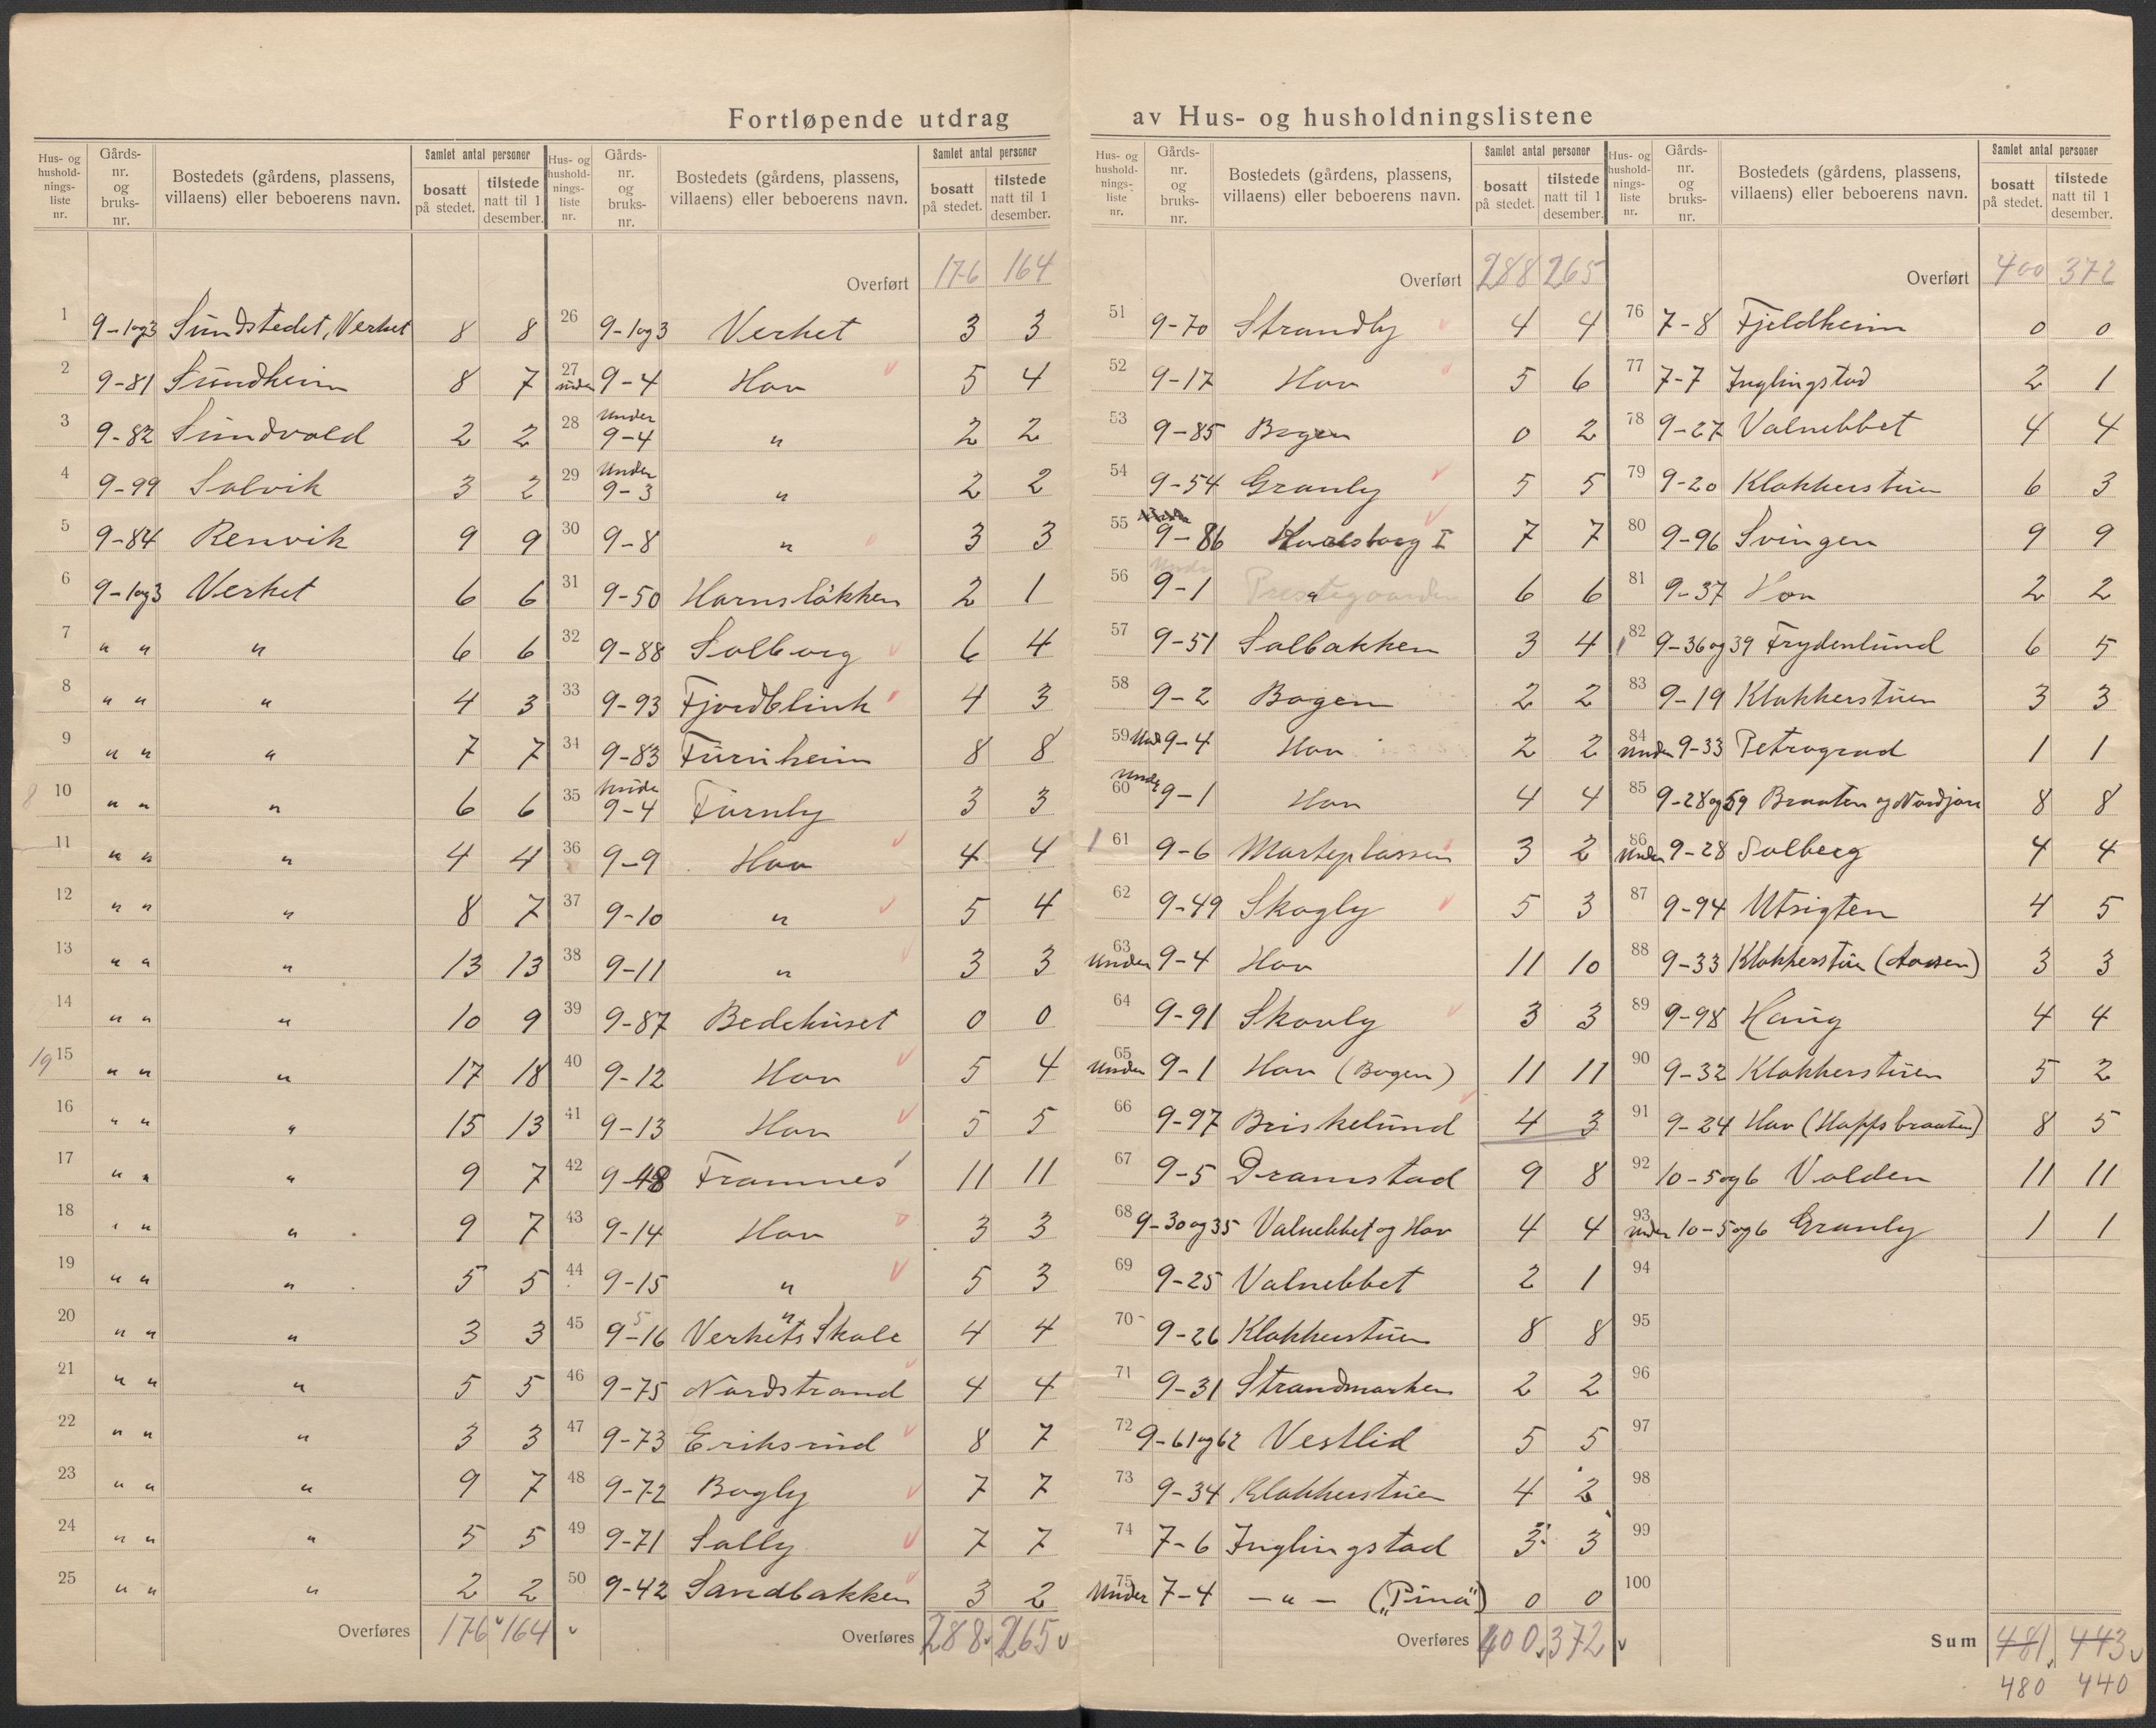 Fortløpende utdrag av Hus- og husholdningslistene
Hus- og hushold-nings-liste nr. | Gårds-nr. og bruks-nr. | Bostedets (gårdens, plassens, villaens) eller beboerens navn. | Samlet antal personer | bosatt på stedet. | tilstede natt til 1 desember.
1 9-1og3 Sundstedet, Verket 8 8
2 9-81 Sundheim 8 7
3 9-82 Sundvold 2 2
4 9-99 Solvik 3 2
5 9-84 Renvik 9 9
6 9-1og3 Verket 6 6
7 " " " 6 6
8 " " " 4 3
9 " " " 7 7
8 10 " " " 6 6
11 " " " 4 4
12 " " " 8 7
13 " " " 13 13
14 " " " 10 9
19 15 " " " 17 18
16 " " " 15 13
17 " " " 9 7
18 " " " 9 7
19 " " " 5 5
20 " " " 3 3
21 " " " 5 5
22 " " " 3 3
23 " " " 9 7
24 " " " 5 5
25 " " " 2 2
Overføres 176 164
Hus- og hushold-nings-liste nr. | Gårds-nr. og bruks-nr. | Bostedets (gårdens, plassens, villaens) eller beboerens navn. | Samlet antal personer | bosatt på stedet. | tilstede natt til 1 desember.
Overført 176 164
26 9-1og3 Verket 3 3
27 under 9-4 Hov 5 4
28 Under 9-4 " 2 2
29 Under 9-3 " 2 2
30 9-8 " 3 3
31 9-50 Hornsløkken 2 1
32 9-88 Solborg 6 4
33 9-93 Fjordblink 4 3
34 9-83 Furuheim 8 8
35 Under 9-4 Furuly 3 3
36 9-9 Hov 4 4
37 9-10 " 5 4
38 9-11 " 3 3
39 9-87 Bedehuset 0 0
40 9-12 Hov 5 4
41 9-13 Hov 5 5
42 9-48 Framnes 11 11
43 9-14 Hov 3 3
44 9-15 " 5 3
45 9-16 Verkets Skole 4 4
46 9-75 Nordstrand 4 4
47 9-73 Eriksrud 8 7
48 9-72 Bogly 7 7
49 9-71 Solly 7 7
50 9-42 Sandbakken 3 2
Overføres 288 265
Hus- og hushold-nings-liste nr. | Gårds-nr. og bruks-nr. | Bostedets (gårdens, plassens, villaens) eller beboerens navn. | Samlet antal personer | bosatt på stedet. | tilstede natt til 1 desember.
Overført 288 265
51 9-70 Strandly 4 4
52 9-17 Hov 5 6
53 9-85 Bogen 0 2
54 9-54 Granly 5 5
55 9-86 Karlsborg I 7 7
56 Under 9-1 Prestegaarden 6 6
57 9-51 Solbakken 3 4
58 9-2 Bogen 2 2
59 Und 9-4 Hov 2 2
60 Under 9-1 Hov 4 4
61 9-6 Marteplassen 3 2
62 9-49 Skogly 5 3
63 Under 9-4 Hov 11 10
64 9-91 Skovly 3 3
65 Under 9-1 Hov (Bogen) 11 11
66 9-97 Briskelund 4 3
67 9-5 Dramstad 9 8
68 9-30og35 Valnebbet og Hov 4 4
69 9-25 Valnebbet 2 1
70 9-26 Klokkerstuen 8 8
71 9-31 Strandmarken 2 2
72 9-61og62 Vestlid 5 5
73 9-34 Klokkerstuen 4 2
74 7-6 Inglingstad 3 3
75 Under 7-4 — " — („Pina") 0 0
Overføres 400 372
Hus- og hushold-nings-liste nr. | Gårds-nr. og bruks-nr. | Bostedets (gårdens, plassens, villaens) eller beboerens navn. | Samlet antal personer | bosatt på stedet. | tilstede natt til 1 desember.
Overført 400 372
76 7-8 Fjeldheim 0 0
77 7-7 Inglingstad 2 1
78 9-27 Valnebbet 4 4
79 9-20 Klokkerstuen 6 3
80 9-96 Svingen 9 9
81 9-37 Hov 2 2
82 9-36og39 Frydenlund 6 5
83 9-19 Klokkerstuen 3 3
84 Under 9-33 Petrograd 1 1
85 9-28og59 Braaten og Nordjore 8 8
86 Under 9-28 Solberg 4 4
87 9-94 Utsigten 4 5
88 9-33 Klokkerstua (Aasen) 3 3
89 9-98 Haug 4 4
90 9-32 Klokkerstuen 5 2
91 9-24 Hov (Hoppsbraaten) 8 5
92 10-5og6 Volden 11 11
93 under 10-5og6 Granly 1 1
94
95
96
97
98
99
100
Sum 481 443
480 440